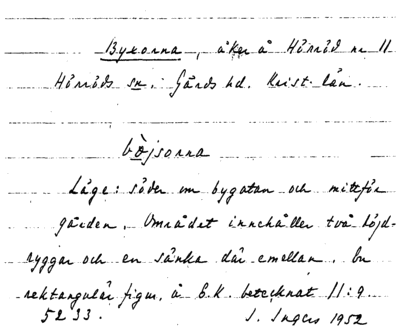 Byxorna, åker å Hörröd nr 11
Hörröds sn. Gärds hd. Krist. län.
bòjsorna
Läge: söder om bygatan och mittför
gården. Området innehåller två höjd-
ryggar och en sänka där emellan. En
rektangulär figur, å E.K. betecknat 11:9
5233. I. Ingers 1952